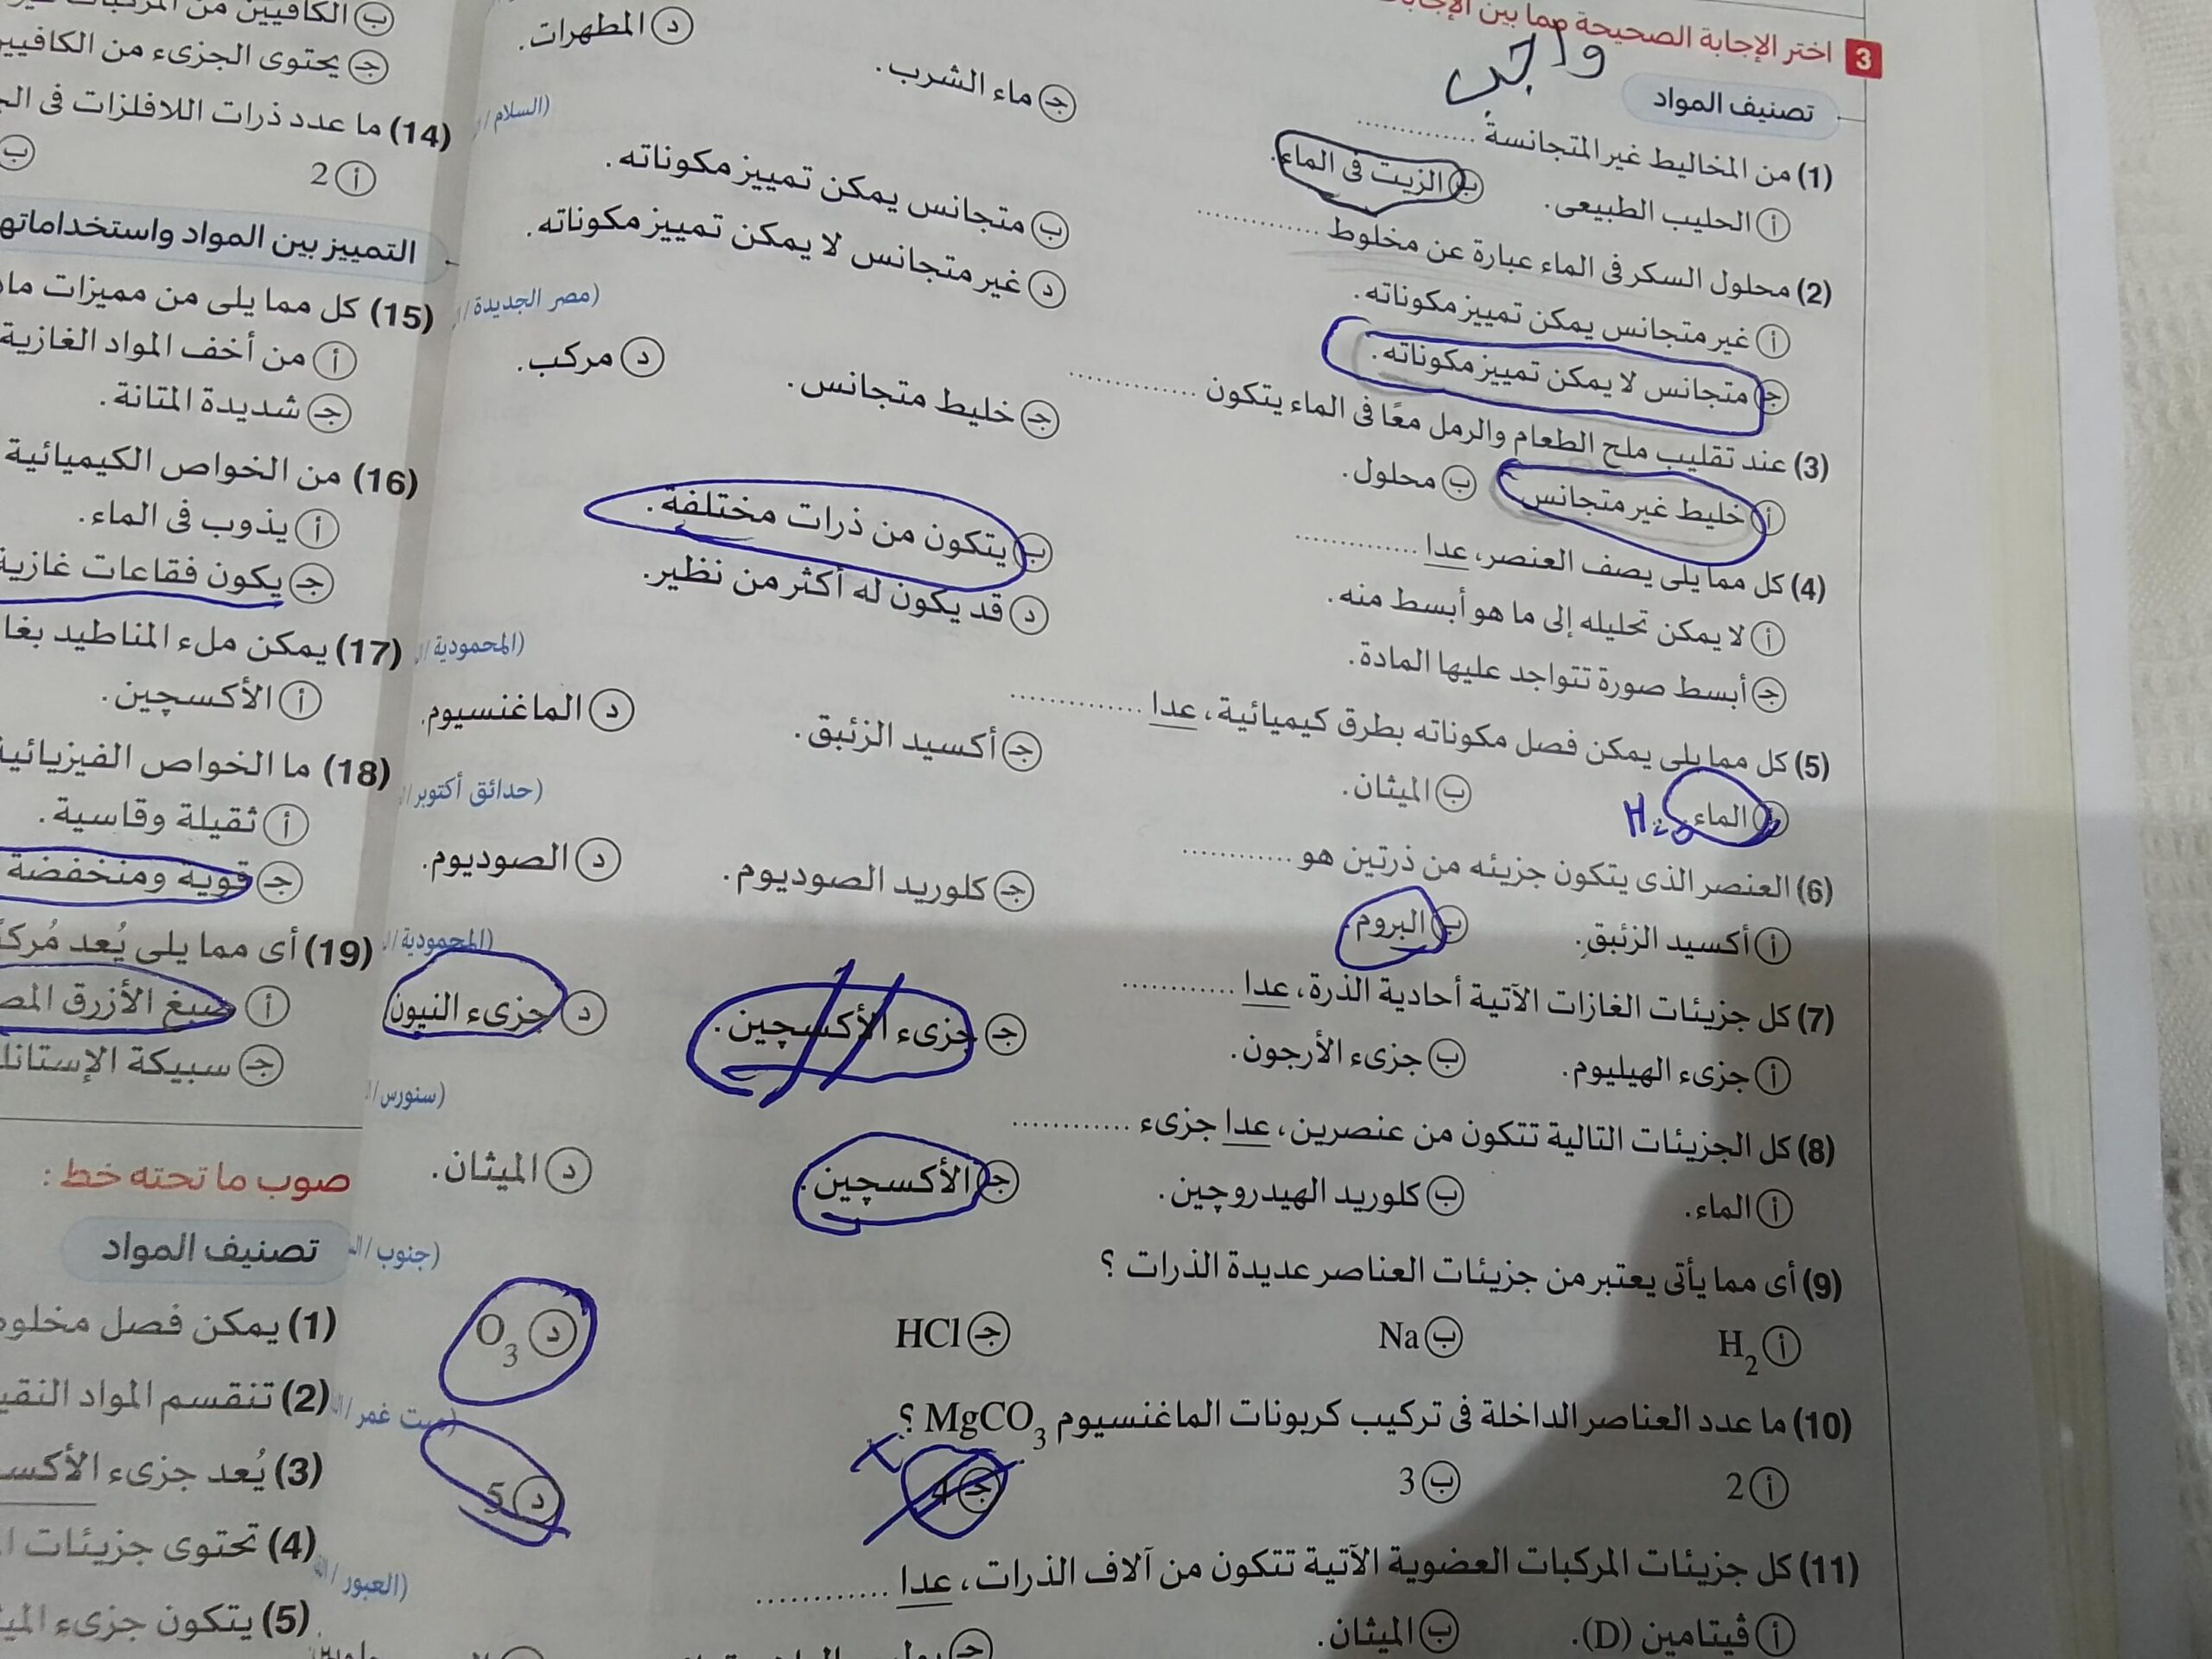 3 اختر الإجابة الصحيحة مما بين الإجابات
واجب
تصنيف المواد
(1) من المخاليط غير المتجانسة ............
أ الحليب الطبيعى. ب الزيت فى الماء. ج ماء الشرب. د المطهرات.
(2) محلول السكر فى الماء عبارة عن مخلوط ............ (السلام /
أ غير متجانس يمكن تمييز مكوناته. ب متجانس يمكن تمييز مكوناته.
ج متجانس لا يمكن تمييز مكوناته. د غير متجانس لا يمكن تمييز مكوناته.
(3) عند تقليب ملح الطعام والرمل معًا فى الماء يتكون ............ (مصر الجديدة /
أ خليط غير متجانس ب محلول. ج خليط متجانس. د مركب.
(4) كل مما يلى يصف العنصر، عدا ............
أ لا يمكن تحليله إلى ما هو أبسط منه. ب يتكون من ذرات مختلفة.
ج أبسط صورة تتواجد عليها المادة. د قد يكون له أكثر من نظير.
(5) كل مما يلى يمكن فصل مكوناته بطرق كيميائية، عدا ............ (المحمودية /
أ الماء. ب الميثان. ج أكسيد الزئبق. د الماغنسيوم.
H₂O
(6) العنصر الذى يتكون جزيئه من ذرتين هو ............ (حدائق أكتوبر /
أ أكسيد الزئبق. ب البروم. ج كلوريد الصوديوم. د الصوديوم.
(7) كل جزيئات الغازات الآتية أحادية الذرة، عدا ............ (المحمودية /
أ جزىء الهيليوم. ب جزىء الأرجون. ج جزىء الأكسچين. د جزىء النيون
(8) كل الجزيئات التالية تتكون من عنصرين، عدا جزىء ............ (سنورس /
أ الماء. ب كلوريد الهيدروچين. ج الأكسچين. د الميثان.
(9) أى مما يأتى يعتبر من جزيئات العناصر عديدة الذرات ؟ (جنوب /
أ H₂ ب Na ج HCl د O₃
(10) ما عدد العناصر الداخلة فى تركيب كربونات الماغنسيوم MgCO₃ ؟ (ميت غمر /
أ 2 ب 3 ج 4 د 5
(11) كل جزيئات المركبات العضوية الآتية تتكون من آلاف الذرات، عدا ............ (العبور /
أ ڤيتامين (D). ب الميثان. ج
ب الكافيين من المركبات
ج يحتوى الجزىء من الكافيين
(14) ما عدد ذرات اللافلزات فى
أ 2 ب
التمييز بين المواد واستخداماتها
(15) كل مما يلى من مميزات
أ من أخف المواد الغازية
ج شديدة المتانة.
(16) من الخواص الكيميائية
أ يذوب فى الماء.
ج يكون فقاعات غازية
(17) يمكن ملء المناطيد
أ الأكسچين.
(18) ما الخواص الفيزيائية
أ ثقيلة وقاسية.
ج قوية ومنخفضة
(19) أى مما يلى يُعد
أ صبغ الأزرق
ج سبيكة
صوب ما تحته خط :
تصنيف المواد
(1) يمكن فصل
(2) تنقسم المواد
(3) يُعد جزىء
(4) تحتوى جزيئات
(5) يتكون جزىء